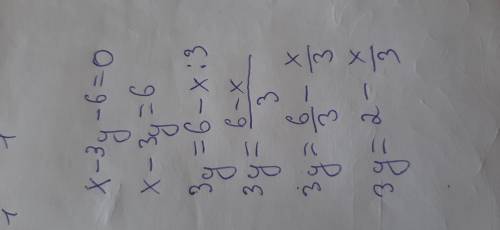 x-3y-6=0
x-3y=6
3y=6-x:3
3y=\frac{6-x}{3}
3y=\frac{6}{3}-\frac{x}{3}
3y=2-\frac{x}{3}